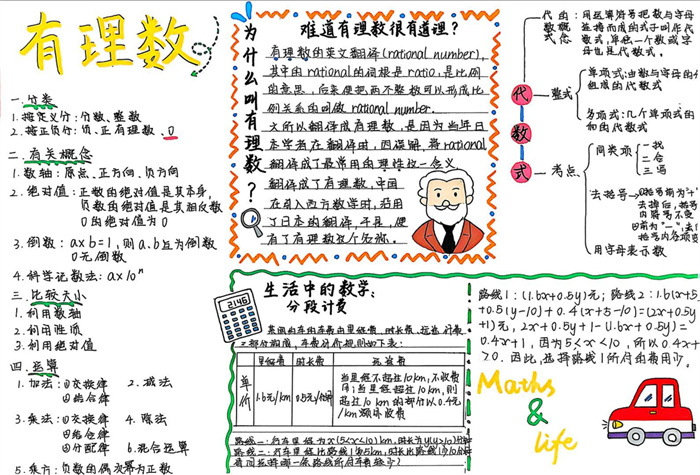 有理数
一.分类
1.按定义分:分数、整数
2.按正负分:负、正有理数、0
二.有关概念
1.数轴:原点、正方向、负方向
2.绝对值:正数的绝对值是其本身,
负数的绝对值是其相反数
0的绝对值为0
3.倒数:a×b=1,则a.b互为倒数
0无倒数
4.科学记数法:a×10ⁿ
三.比较大小
1.利用数轴
2.利用性质
3.利用绝对值
四.运算
1.加法:①交换律 2.减法
②结合律
3.乘法:①交换律 4.除法
②结合律
③分配律 6.混合运算
5.乘方:负数的偶次幂为正数
为什么叫有理数?
难道有理数很有道理?
有理数的英文翻译(rational number),
其中的rational的词根是ratio,是比例
的意思,后来便把两个整数可以形成比
例关系的叫做rational number.
之所以翻译成有理数,是因为当年日
本学者在翻译时,因误解,将rational
翻译成了最常用的理性这一含义
翻译成了有理数,中国
在引入西方数学时,沿用
了日本的翻译,于是,便
有了有理数这个名称.
代数式
代数式的概念:用运算符号把数与字母
连接而成的式子叫作代
数式,单独一个数或字
母也是代数式.
整式
单项式:由数与字母的
组成的代数式
多项式:几个单项式的
和的代数式
考点
同类项
一找
二合
三写
去括号
①括号前为"+"
去掉后,括号
内符号不变
②前为"一",去
括号内各项
用字母表示数
2146
生活中的数学:
分段计费
某网约车的车费由里程费、时长费、远途费
部分构成,车费计价规则如下表:
里程费 时长费 远途费
单价 1.6元/km 0.5元/分钟
当里程不超过10km,不收费
用;当里程超过10km,则
超过10km的部分以0.4元
/km额外收费
路线一:行车里程为x(5<x<10)km,时长为y(y>10)分钟
路线二:行车里程比路线1多5km,时长比路线1少10分
路线1:(1.6x+0.5y)元;路线2:1.6(x+5)
+0.5(y-10)+0.4(x+5-10)=(2x+0.5y
+1)元,2x+0.5y+1-(1.6x+0.5y)=
0.4x+1,因为5<x<10,所以0.4x+1
>0.因此,选择路线1所付车费用少.
Maths
&
life